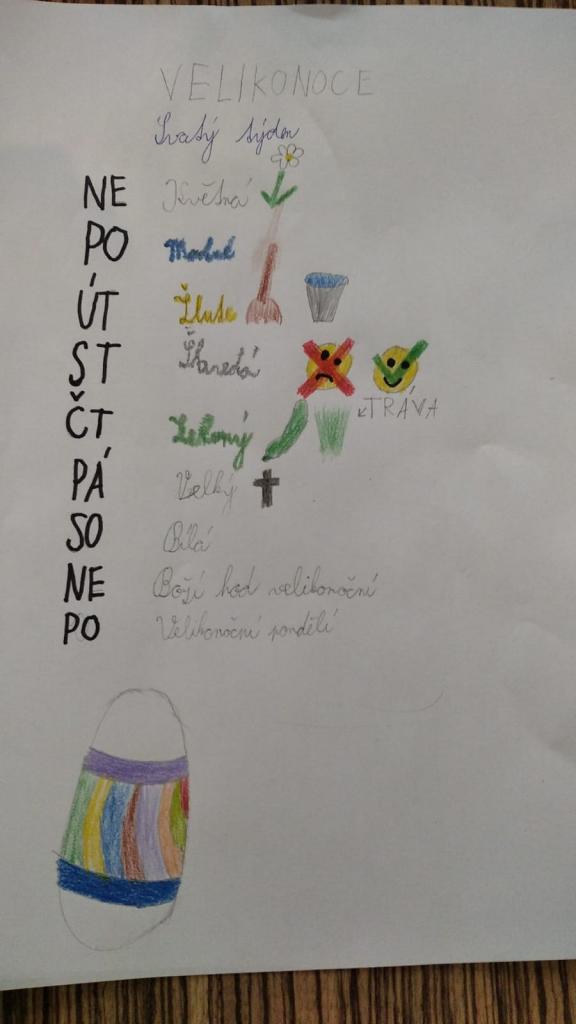 VELIKONOCE
Svatý týden
NE Květná
PO Modré
ÚT Žluté
ST Škaredá
↙TRÁVA
ČT Zelený
PÁ Velký
SO Bílá
NE Boží hod velikonoční
PO Velikonoční pondělí